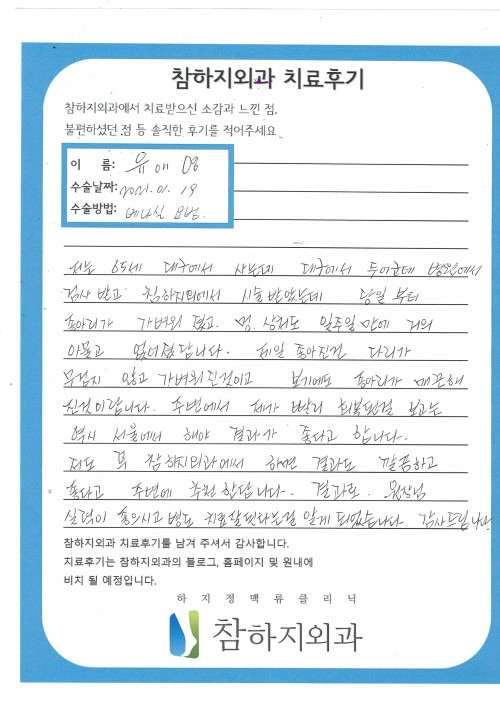 참하지외과 치료후기
참하지외과에서 치료받으신 소감과 느낀 점,
불편하셨던 점 등 솔직한 후기를 적어주세요
이 름: 유애영
수술날짜: 2021.01.19
수술방법: 베나실 요법.
저는 65세 대구에서 사는데 대구에서 두어군데 병원에서
검사 받고 참하지외에서 시술 받았는데 당일 부터
종아리가 가벼워 졌고. 멍. 상처도 일주일 만에 거의
아물고 없어졌답니다. 제일 좋아진건 다리가
무겁지 않고 가벼워진것이고 보기에도 종아리가 매끈해
진것이랍니다. 주변에서 제가 빨리 회복된걸 보고는
역시 서울에서 해야 결과가 좋다고 합니다.
저도 꼭 참하지외과에서 하면 결과도 깔끔하고
좋다고 주변에 추천 합답니다. 결과로. 원장님
실력이 좋으시고 병도 치료잘된다는걸 알게 되었습니다. 감사드립니다.
참하지외과 치료후기를 남겨 주셔서 감사합니다.
치료후기는 참하지외과의 블로그, 홈페이지 및 원내에
비치 될 예정입니다.
하지정맥류클리닉
참하지외과